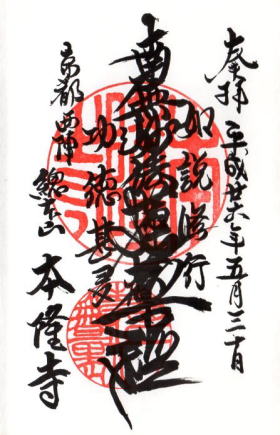 奉拝 平成廿六年五月三十日
如説修行
南無妙法蓮華経
功徳甚多
京都西陣 総本山 本隆寺